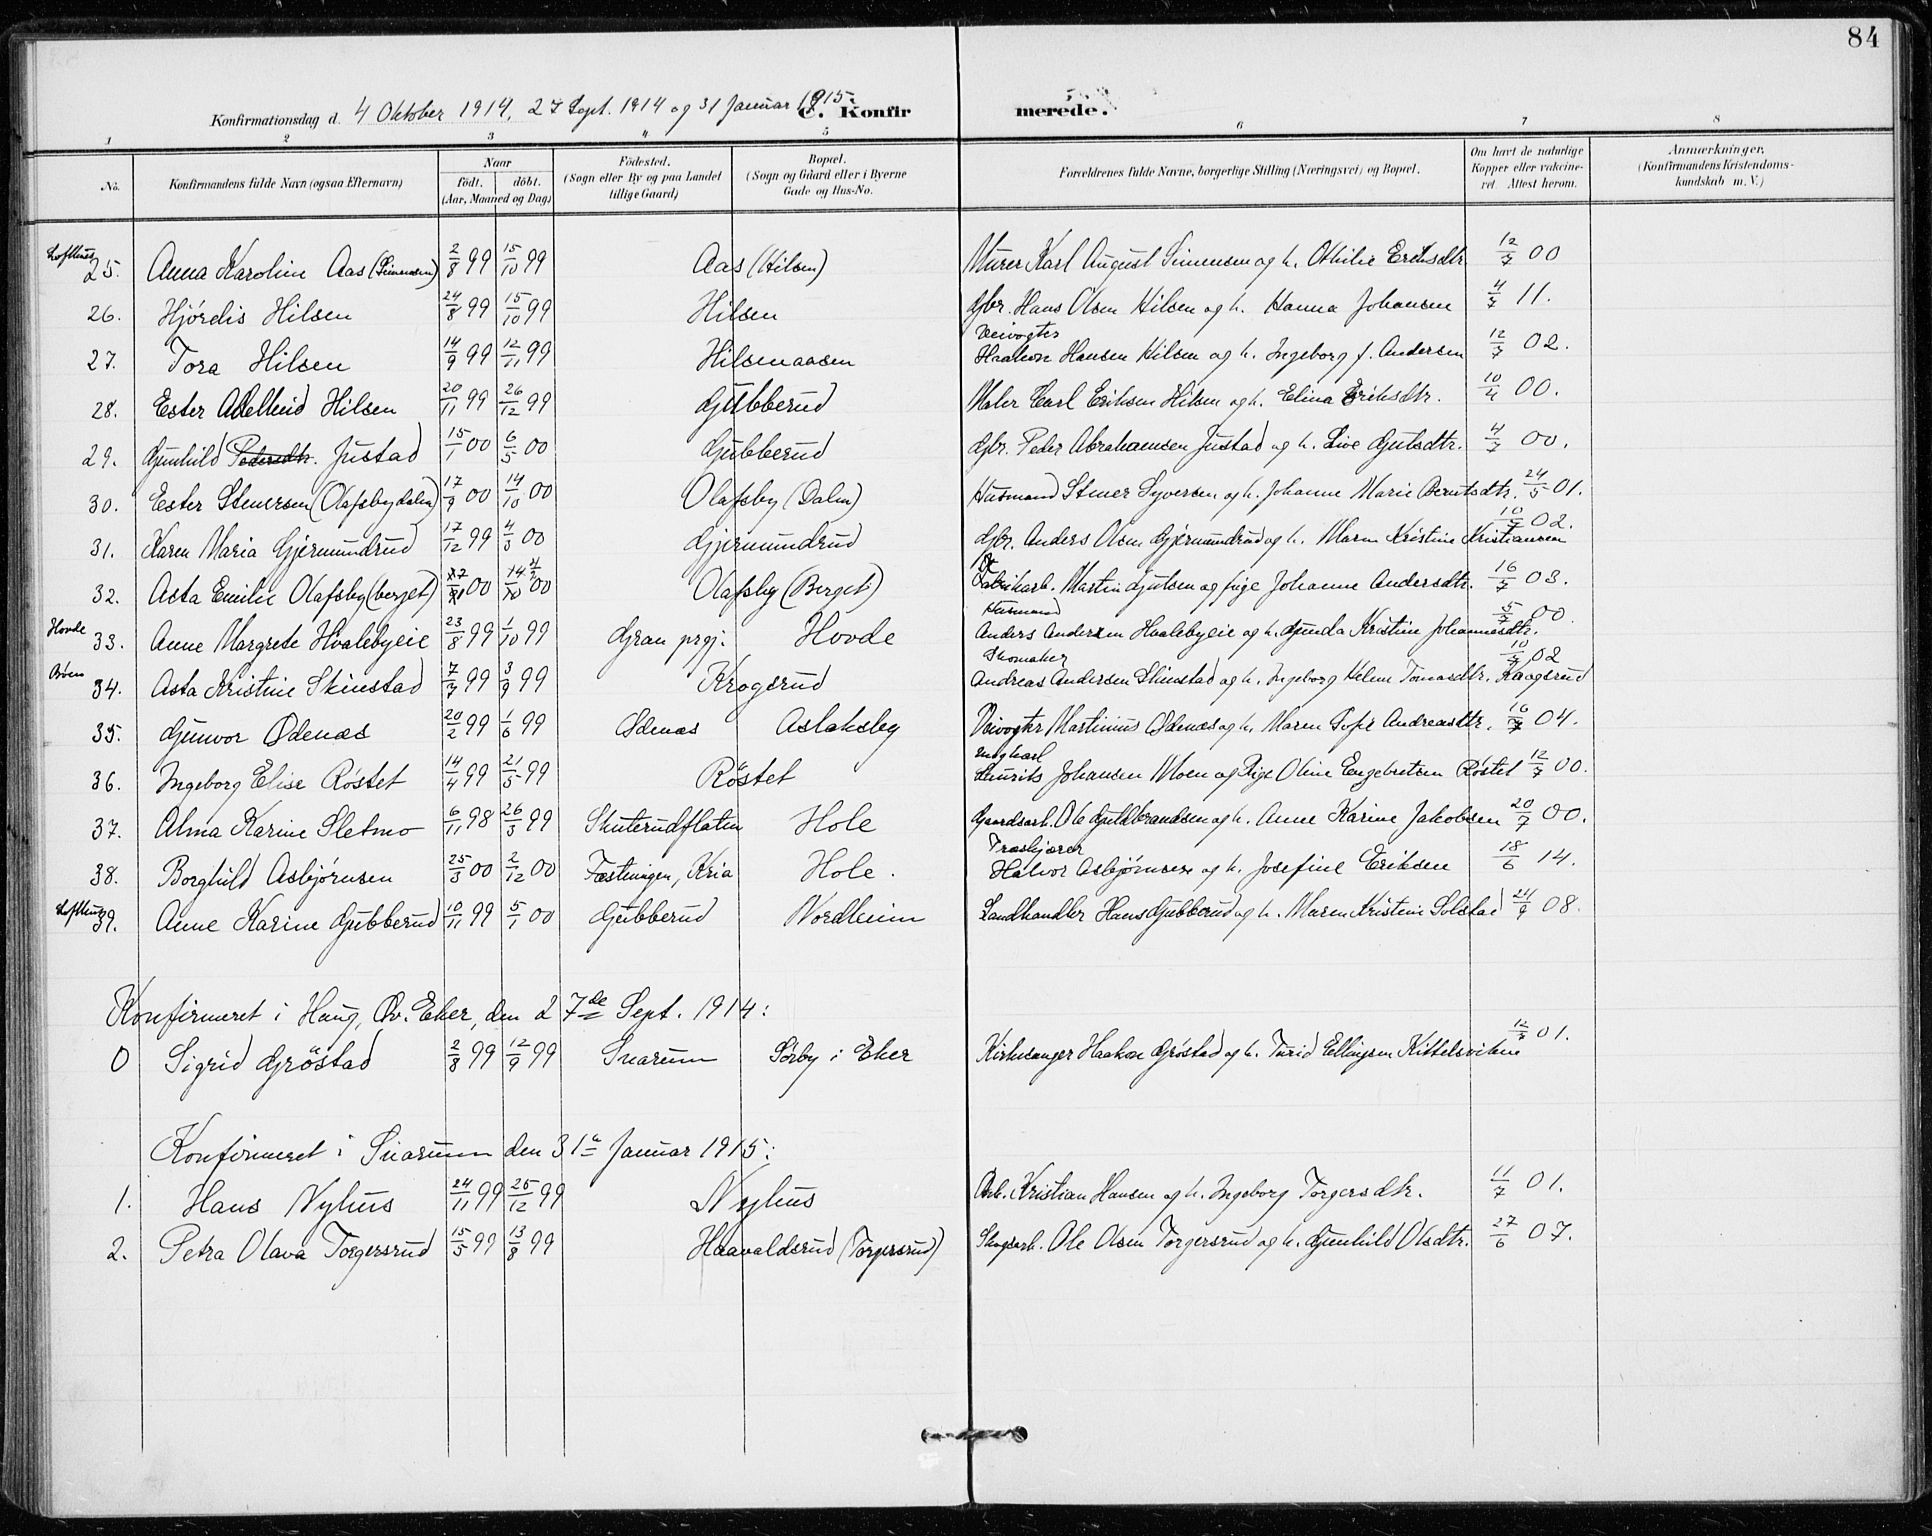 84
Konfirmationsdag d. 4 Oktober 1914, 27 Sept. 1914 og 31 Januar 1915. C. Konfirmerede.
1 2 3 4 5 6 7 8
No. Konfirmandens fulde Navn (ogsaa Efternavn) Naar födt. döbt. (Aar, Maaned og Dag) Födested. (Sogn eller By og paa Landet tillige Gaard) Bopæl. (Sogn og Gaard eller i Byerne Gade og Hus-No. Forældrenes fulde Navne, borgerlige Stilling (Næringsvei) og Bopæl. Om havt de naturlige Kopper eller vakcineret. Attest herom. Anmærkninger. (Konfirmandens Kristendomskundskab m. V.)
Lofthus
25. Anna Karoline Aas (Simensen) 2/8 99 15/10 99 Aas (Hilsen) Murer Karl August Simensen og h. Othilie Eriksdtr. 12/7 00
26. Hjördis Hilsen 24/8 99 15/10 99 Hilsen Gbr. Hans Olsen Hilsen og h. Hanna Johansen 4/7 11.
27. Tora Hilsen 14/9 99 12/11 99 Hilsenaasen Veivogter Haakon Hansen Hilsen og h. Ingeborg f. Andersen 12/7 02.
28. Ester Adelheid Hilsen 20/11 99 26/12 99 Gubberud Maler Carl Eriksen Hilsen og h. Elina Eriksdtr. 10/4 00.
29. Gunhild Pedersdtr. Justad 15/1 00 6/5 00 Gubberud Gbr. Peder Abrahamsen Justad og h. Live Gulsdtr. 4/7 00.
30. Ester Stenersen (Olafsbydalen) 17/9 00 14/10 00 Olafsby (Dalen) Husmand Stener Syversen og h. Johanne Marie Berntsdtr. 24/5 01.
31. Karen Maria Gjermundrud 17/12 99 4/3 00 Gjermundrud Gbr. Anders Olsen Gjermundrud og h. Maren Kristine Kristiansen 10/7 02.
32. Asta Emilie Olafsby (berget) 00 00 Olafsby (Berget) Fabrikarb. Martin Gulsen og pige Johanne Andersdtr. 16/7 03.
Hovde
33. Anne Margrete Hvalebyeie 23/8 99 1/10 99 Gran prgj. Hovde Husmand Anders Andersen Hvalebyeie og h. Gunda Kristine Johannesdtr. 5/7 00.
34. Asta Kristine Skinstad 7/7 99 3/9 99 Krogsrud Skomaker Andreas Andersen Skinstad og h. Ingeborg Helene Tomasdtr. Kaagsrud 10/7 02
35. Gunvor Ødenæs 20/2 99 1/6 99 Ødenæs Aslaksby Veivogter Martinius Ødenæs og h. Maren Sofie Andreasdtr. 16/7 04.
36. Ingeborg Elise Röstet 14/4 99 21/5 99 Röstet Ungkarl Laurits Johansen Moen og Pige Oline Engebretsen Röstet 12/7 00.
37. Alma Karine Sletmo 6/11 98 26/3 99 Skuterudflaten Hole Gaardsarb. Ole Guldbrandsen og h. Anne Karine Jakobsen 20/7 00.
38. Borghild Asbjörnsen 25/3 00 2/12 00 Fæstningen, Kria Hole. Træskjærer Halvor Asbjørnsen og h. Josefine Eriksen 18/6 14.
Lofthus
39. Anne Karine Gubberud 10/11 99 5/1 00 Gubberud Nordheim Landhandler Hans Gubberud og h. Maren Kristine Solstad 24/9 08.
Konfirmeret i Haug, Øv. Eker, den 27de Sept. 1914:
0 Sigrid Gröstad 2/8 99 12/9 99 Snarum Sørby i Eker Kirkesanger Haakon Gröstad og h. Turid Ellingsen Kittelsviken 01.
Konfirmeret i Snarum den 31te Januar 1915:
1. Hans Nyhus 24/11 99 25/12 99 Nyhus Arb. Kristian Hansen og h. Ingeborg Torgersdtr. 11/7 01.
2. Petra Olava Torgersrud 15/5 99 13/8 99 Haavaldsrud (Torgersrud) Skogsarb. Ole Olsen Torgersrud og h. Gunhild Olsdtr. 27/6 07.